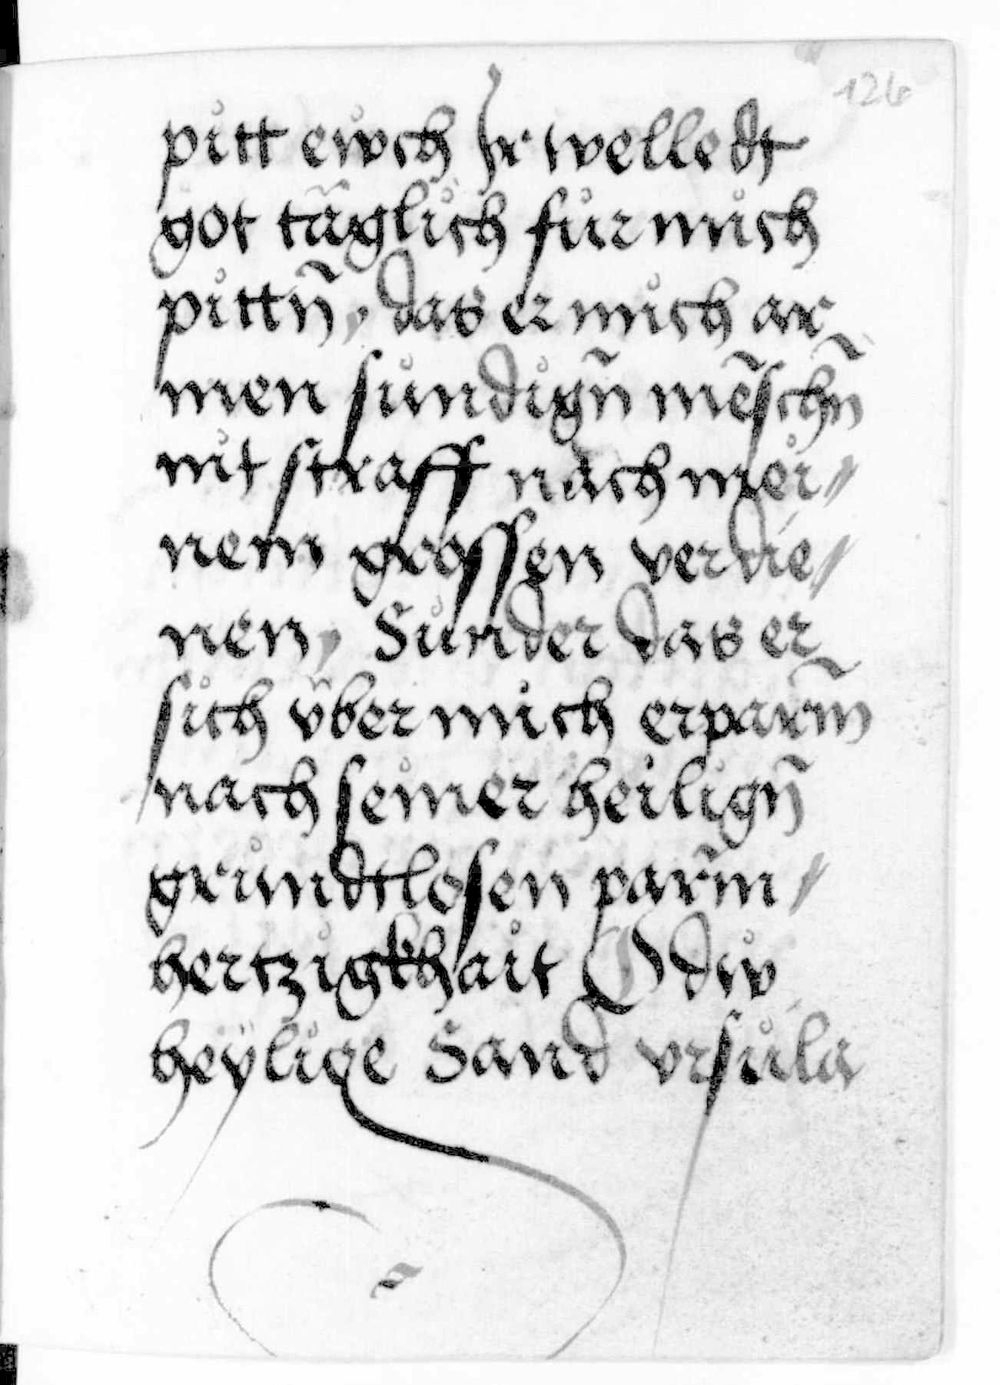 126
pitt ewch Jr welledt
got täglich für mich
pittñ, das er mich ar
men sündigñ mẽschñ
nit straff nach mei⸗
nem grossen verdie⸗
nen, Sunder das er
sich vber mich erparm̃
nach seiner heiligñ
grundtlosen parm̃⸗
hertzigkhait O diw
heÿlige Sand vrsula